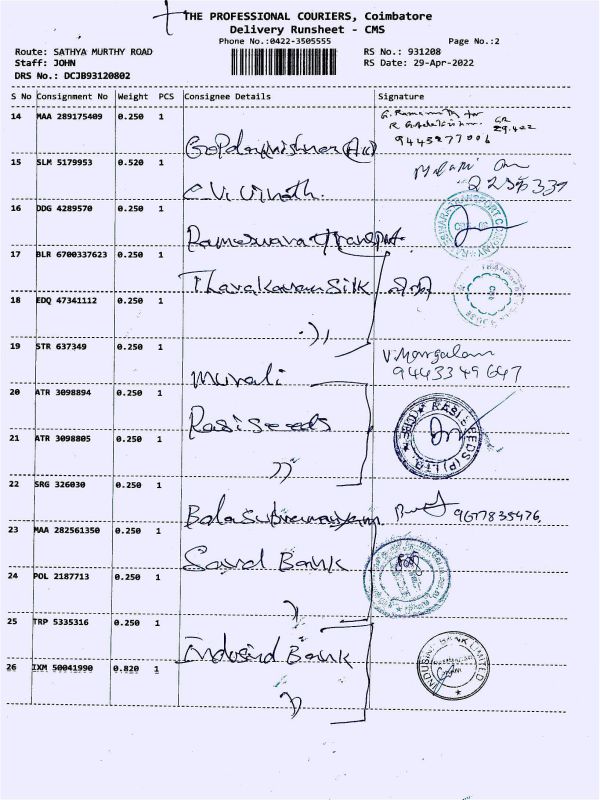 THE PROFESSIONAL COURIERS, Coimbatore
Delivery Runsheet - CMS
Phone No.:0422-3505555 Page No.:2
Route: SATHYA MURTHY ROAD RS No.: 931208
Staff: JOHN RS Date: 29-Apr-2022
DRS No.: DCJB93120802
S No Consignment No Weight PCS Consignee Details Signature
14 MAA 289175409 0.250 1
15 SLM 5179953 0.520 1
C.V. Vinoth.
16 DDG 4289570 0.250 1 Rameswara Transport
17 BLR 6700337623 0.250 1 Tharakaram Silk
18 EDQ 47341112 0.250 1 ,,
19 STR 637349 0.250 1 Murali V. Mangalam
9443349647
20 ATR 3098894 0.250 1 Rasi Seeds RASI SEEDS (P) LTD.
21 ATR 3098805 0.250 1 ,,
22 SRG 326030 0.250 1 Balasubramanyam 9677835476
23 MAA 282561350 0.250 1 Saved Bank
24 POL 2187713 0.250 1 ,,
25 TRP 5335316 0.250 1 Indusind Bank INDUSIND BANK LIMITED
26 IXM 50041990 0.820 1 ,,